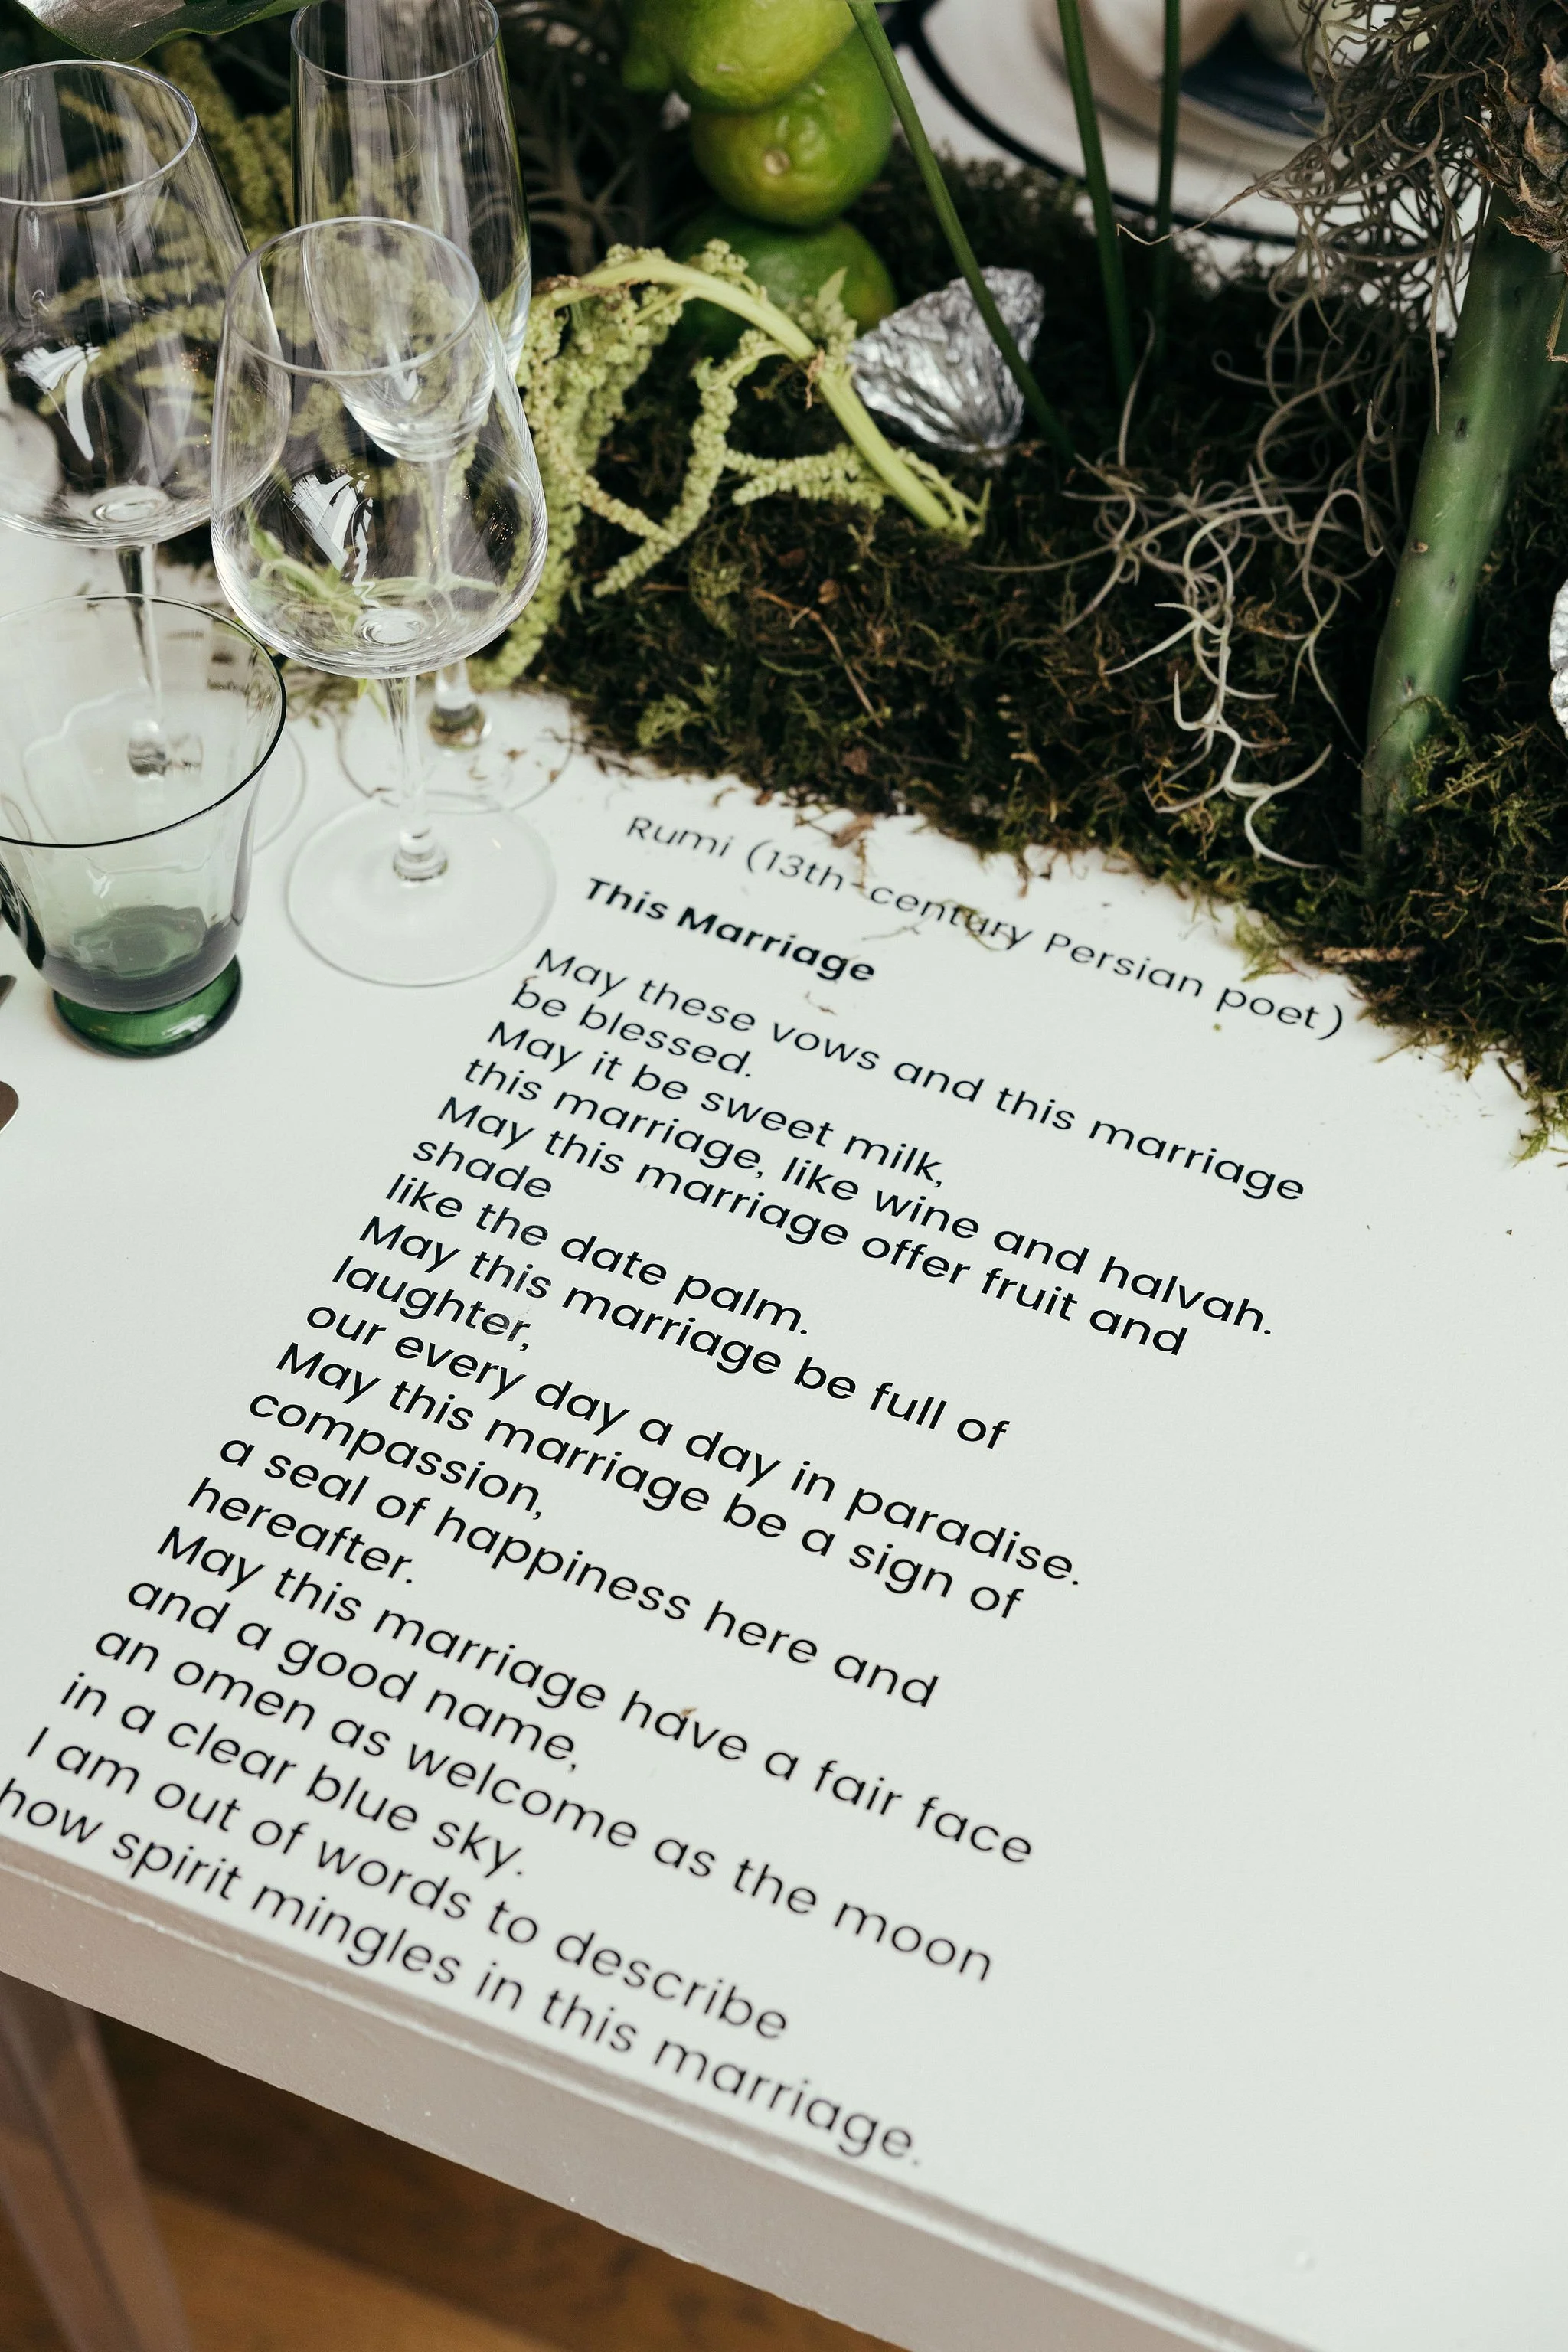 Rumi (13th-century Persian poet)
This Marriage
May these vows and this marriage
be blessed.
May it be sweet milk,
this marriage, like wine and halvah.
May this marriage offer fruit and
shade
like the date palm.
May this marriage be full of
laughter,
our every day a day in paradise.
May this marriage be a sign of
compassion,
a seal of happiness here and
hereafter.
May this marriage have a fair face
and a good name,
an omen as welcome as the moon
in a clear blue sky.
I am out of words to describe
how spirit mingles in this marriage.